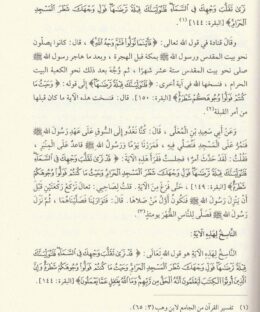 نَرَىٰ تَقَلُّبَ وَجْهِكَ فِي السَّمَاءِ فَلَنُوَلِّيَنَّكَ قِبْلَةً تَرْضَاهَا فَوَلِّ وَجْهَكَ شَطْرَ الْمَسْجِدِ
الْحَرَامِ﴾ [البقرة: ١٤٤] (١).
وقال قتادة في قول الله تعالى: ﴿فَأَيْنَمَا تُوَلُّوا فَثَمَّ وَجْهُ اللَّهِ﴾، قال: كانوا يصلّون
نحو بيت المقدس ورسول الله ﷺ بمكة قبل الهجرة، وبعدما هاجر رسول الله ﷺ
صلى نحو بيت المقدس ستة عشر شهرًا، ثم وُجِّهَ بعد ذلك نحو الكعبة البيت
الحرام، فنسخها الله في آية أخرى: ﴿فَلَنُوَلِّيَنَّكَ قِبْلَةً تَرْضَاهَا﴾ إلى قوله: ﴿وَحَيْثُ مَا
كُنْتُمْ فَوَلُّوا وُجُوهَكُمْ شَطْرَهُ﴾ [البقرة: ١٥٠]. قال: فنسخت هذه الآية ما كان قبلها
من أمر القبلة (٢).
وعن أبي سعيد بن المُعَلَّى، قال: كُنَّا نَغْدُو إِلَى السُّوقِ عَلَى عَهْدِ رَسُولِ اللهِ
ﷺ، فَنَمُرُّ عَلَى الْمَسْجِدِ فَنُصَلِّي فِيهِ، فَمَرَرْنَا يَوْمًا وَرَسُولُ اللهِ ﷺ قَاعِدٌ عَلَى الْمِنْبَرِ،
فَقُلْتُ: لَقَدْ حَدَثَ أَمْرٌ، فَجَلَسْتُ فَقَرَأَ هَذِهِ الْآيَةَ: ﴿قَدْ نَرَىٰ تَقَلُّبَ وَجْهِكَ فِي
السَّمَاءِ فَلَنُوَلِّيَنَّكَ قِبْلَةً تَرْضَاهَا فَوَلِّ وَجْهَكَ شَطْرَ الْمَسْجِدِ الْحَرَامِ وَحَيْثُ مَا كُنْتُمْ فَوَلُّوا وُجُوهَكُمْ
شَطْرَهُ﴾ [البقرة: ١٤٤]، حَتَّى فَرَغَ مِنَ الْآيَةِ. قُلْتُ لِصَاحِبِي: تَعَالَ نَرْكَعْ رَكْعَتَيْنِ قَبْلَ
أَنْ يَنْزِلَ رَسُولُ اللهِ ﷺ فَنَكُونَ أَوَّلَ مَنْ صَلَّى، فَتَوَارَيْنَا فَصَلَّيْنَاهُمَا، ثُمَّ نَزَلَ
رَسُولُ اللهِ ﷺ فَصَلَّى لِلنَّاسِ الظُّهْرَ يَوْمَئِذٍ.
النَّاسِخُ لِهَذِهِ الْآيَةِ:
النَّاسِخُ لهذه الآية هو قول الله تعالى: ﴿قَدْ نَرَىٰ تَقَلُّبَ وَجْهِكَ فِي السَّمَاءِ
فَلَنُوَلِّيَنَّكَ قِبْلَةً تَرْضَاهَا فَوَلِّ وَجْهَكَ شَطْرَ الْمَسْجِدِ الْحَرَامِ وَحَيْثُ مَا كُنْتُمْ فَوَلُّوا وُجُوهَكُمْ شَطْرَهُ وَإِنَّ
الَّذِينَ أُوتُوا الْكِتَابَ لَيَعْلَمُونَ أَنَّهُ الْحَقُّ مِنْ رَبِّهِمْ وَمَا اللَّهُ بِغَافِلٍ عَمَّا يَعْمَلُونَ﴾ [البقرة: ١٤٤].
(١) تفسير القرآن من الجامع لابن وهب (٣: ٦٥).